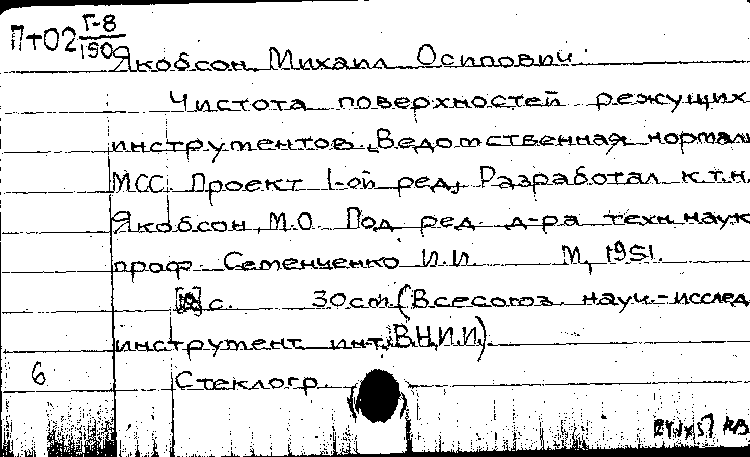 ПтО2 Г-8/150
Якобсон, Михаил Осипович.
Чистота поверхностей режущих
инструментов. Ведомственная нормаль
МСС. Проект 1-ой ред. Разработал к.т.н.
Якобсон, М.О. Под ред. д-ра техн. наук
проф. Семенченко И.И. М, 1951.
с. 30 см (Всесоюз. науч.-исслед.
инструмент. инт. В.Н.И.И.).
6 Стеклогр.